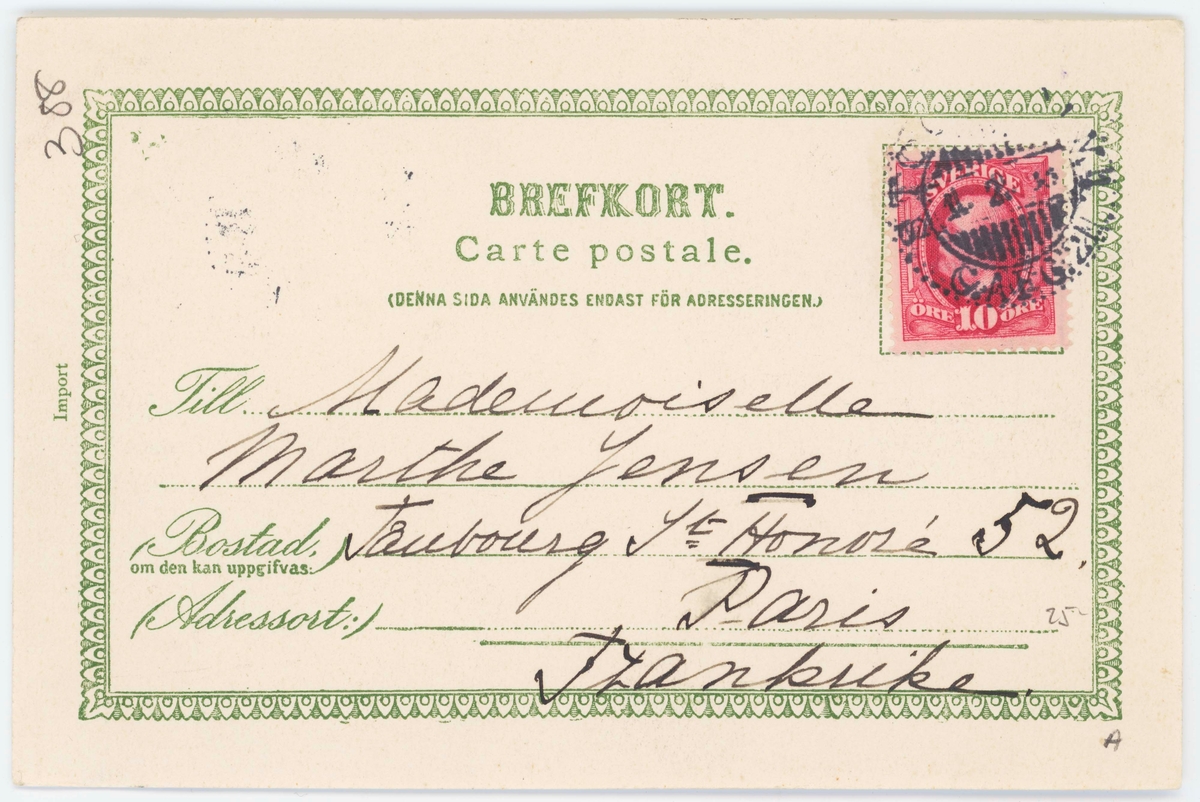 388
BREFKORT.
Carte postale.
(DENNA SIDA ANVÄNDES ENDAST FÖR ADRESSERINGEN.)
SVERIGE
ÖRE 10 ÖRE
Import
Till Mademoiselle
Marthe Jensen
(Bostad, Faubourg St Honoré 52.
om den kan uppgifvas:)
(Adressort:) Paris
25-
Frankrike.
A